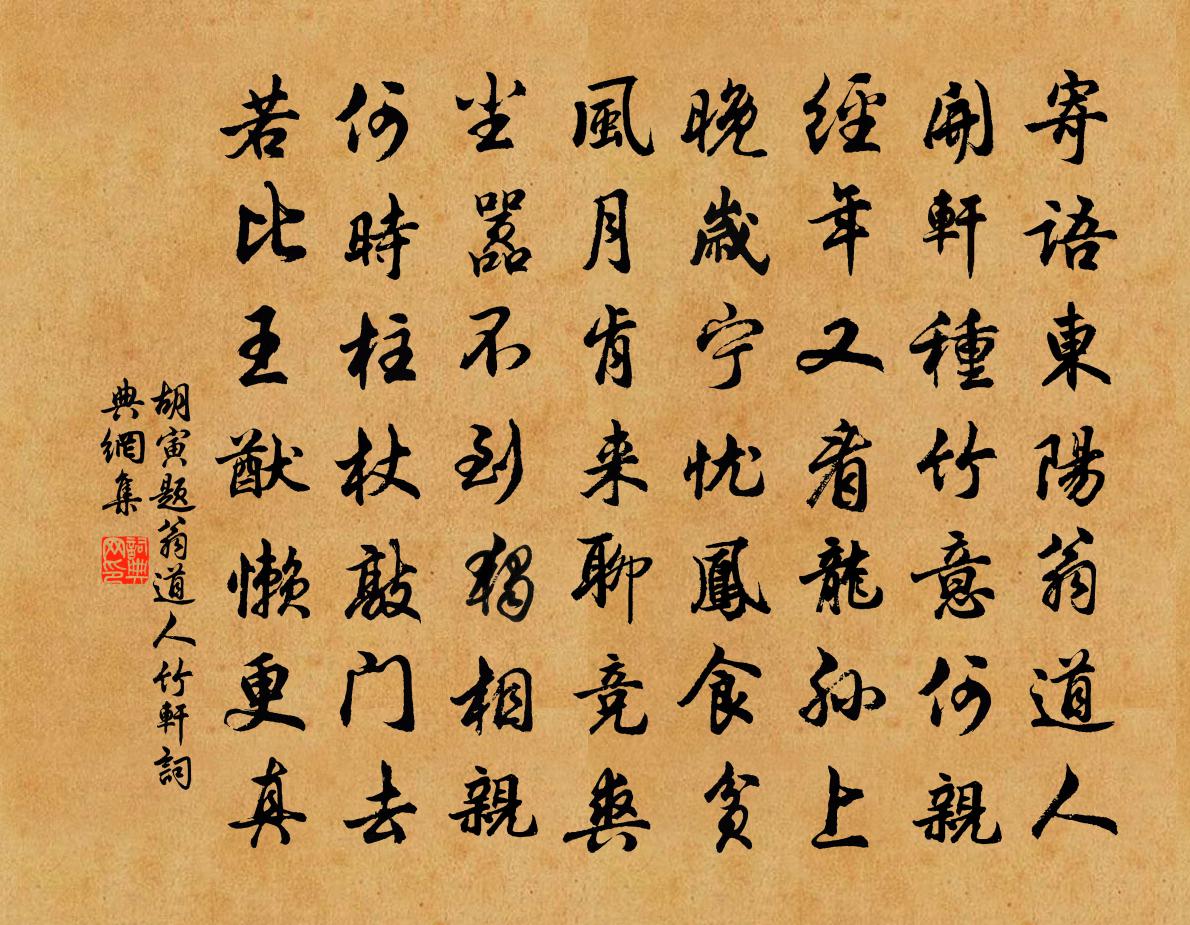 寄語東陽翁道人
開軒種竹意何親
經年又看龍孫上
晚歲宁忧鳳食貧
風月肯来聊竞爽
尘嚣不到猲相親
何時柱杖敲门去
若比王猷懒更真
胡寅题翁道人竹軒詞
典網集
詞典网印